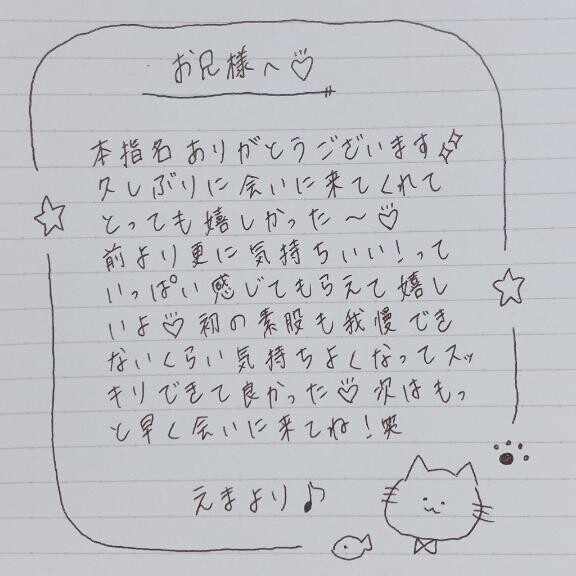 お兄様へ♡
本指名ありがとうございます✨
久しぶりに会いに来てくれて
とっても嬉しかった〜♡
前より更に気持ちいい!って
いっぱい感じてもらえて嬉し
いよ♡初の素股も我慢でき
ないくらい気持ちよくなってスッ
キリできて良かった♡次はもっ
と早く会いに来てね!笑
えまより♪